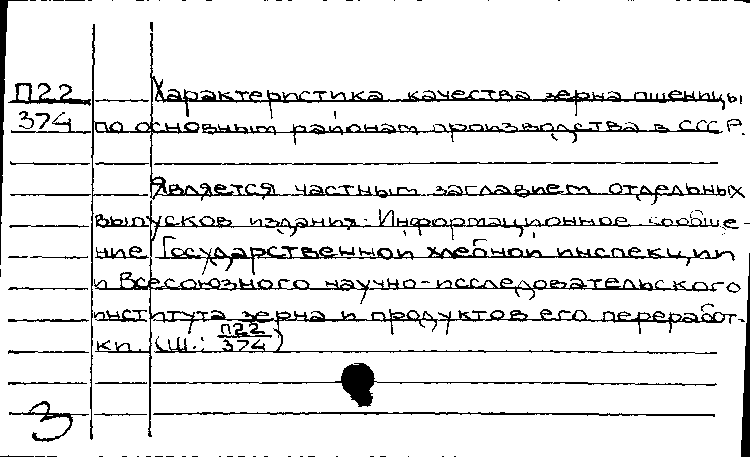 П22 Характеристика качества зерна пшеницы
374 по основным районам производства в СССР.
Является частным заглавием отдельных
выпусков издания: Информационное сообще-
ние Государственной хлебной инспекции
и Всесоюзного научно-исследовательского
института зерна и продуктов его переработ-
ки. (Ш.: П22/374)
3